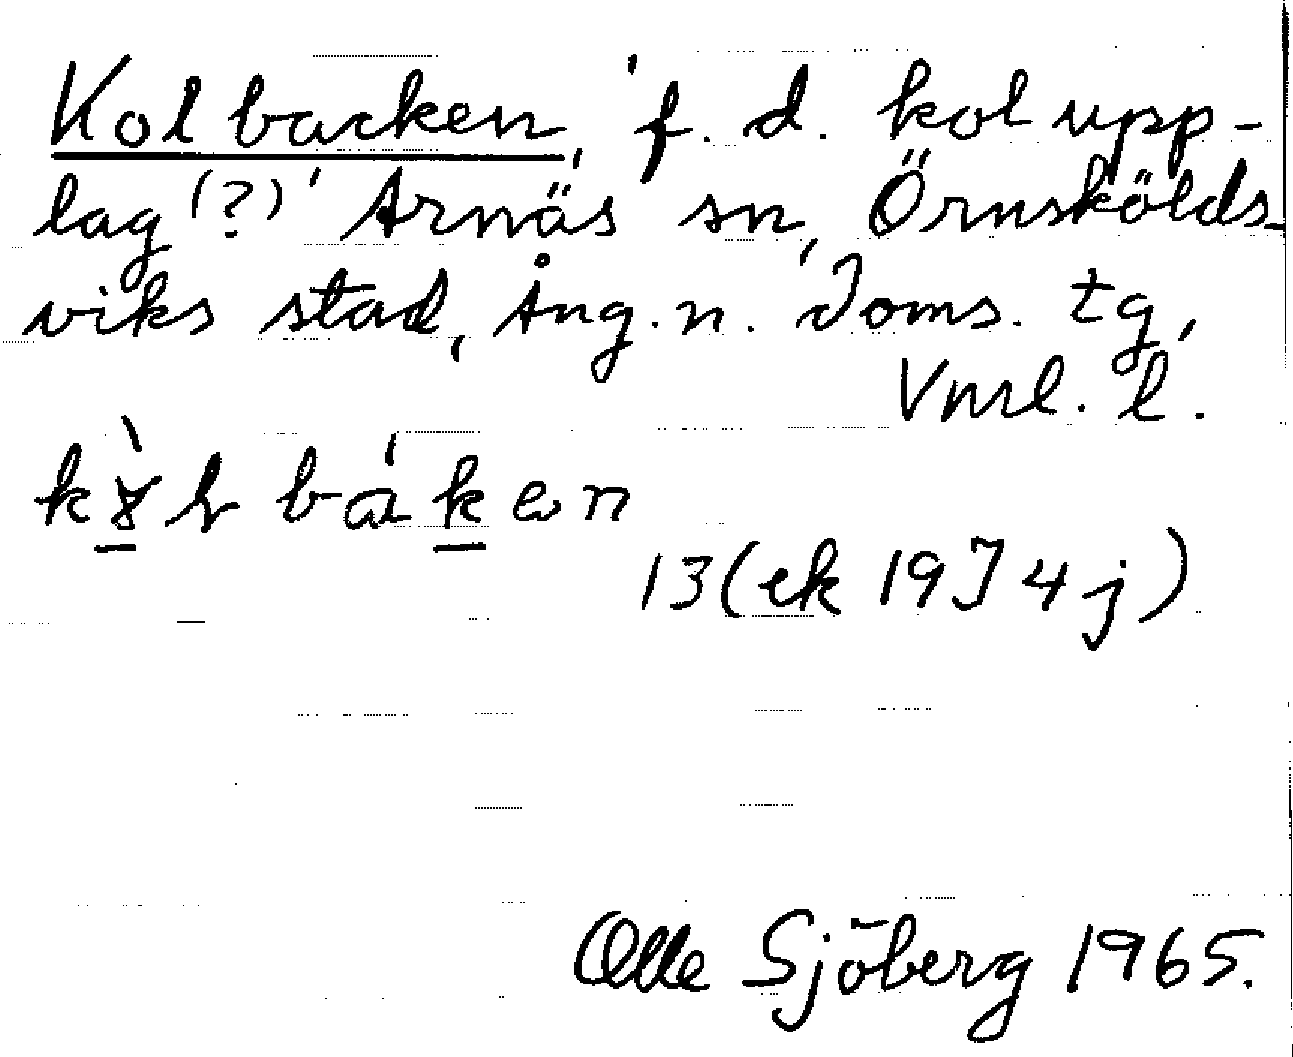 Kolbacken, 'f. d. kolupp-
lag (?)' Arnäs sn, Örnskölds-
viks stad, Ång. n. Doms. tg,
Vnrl. l.
13 (ek 19J 4j)
Olle Sjöberg 1965.